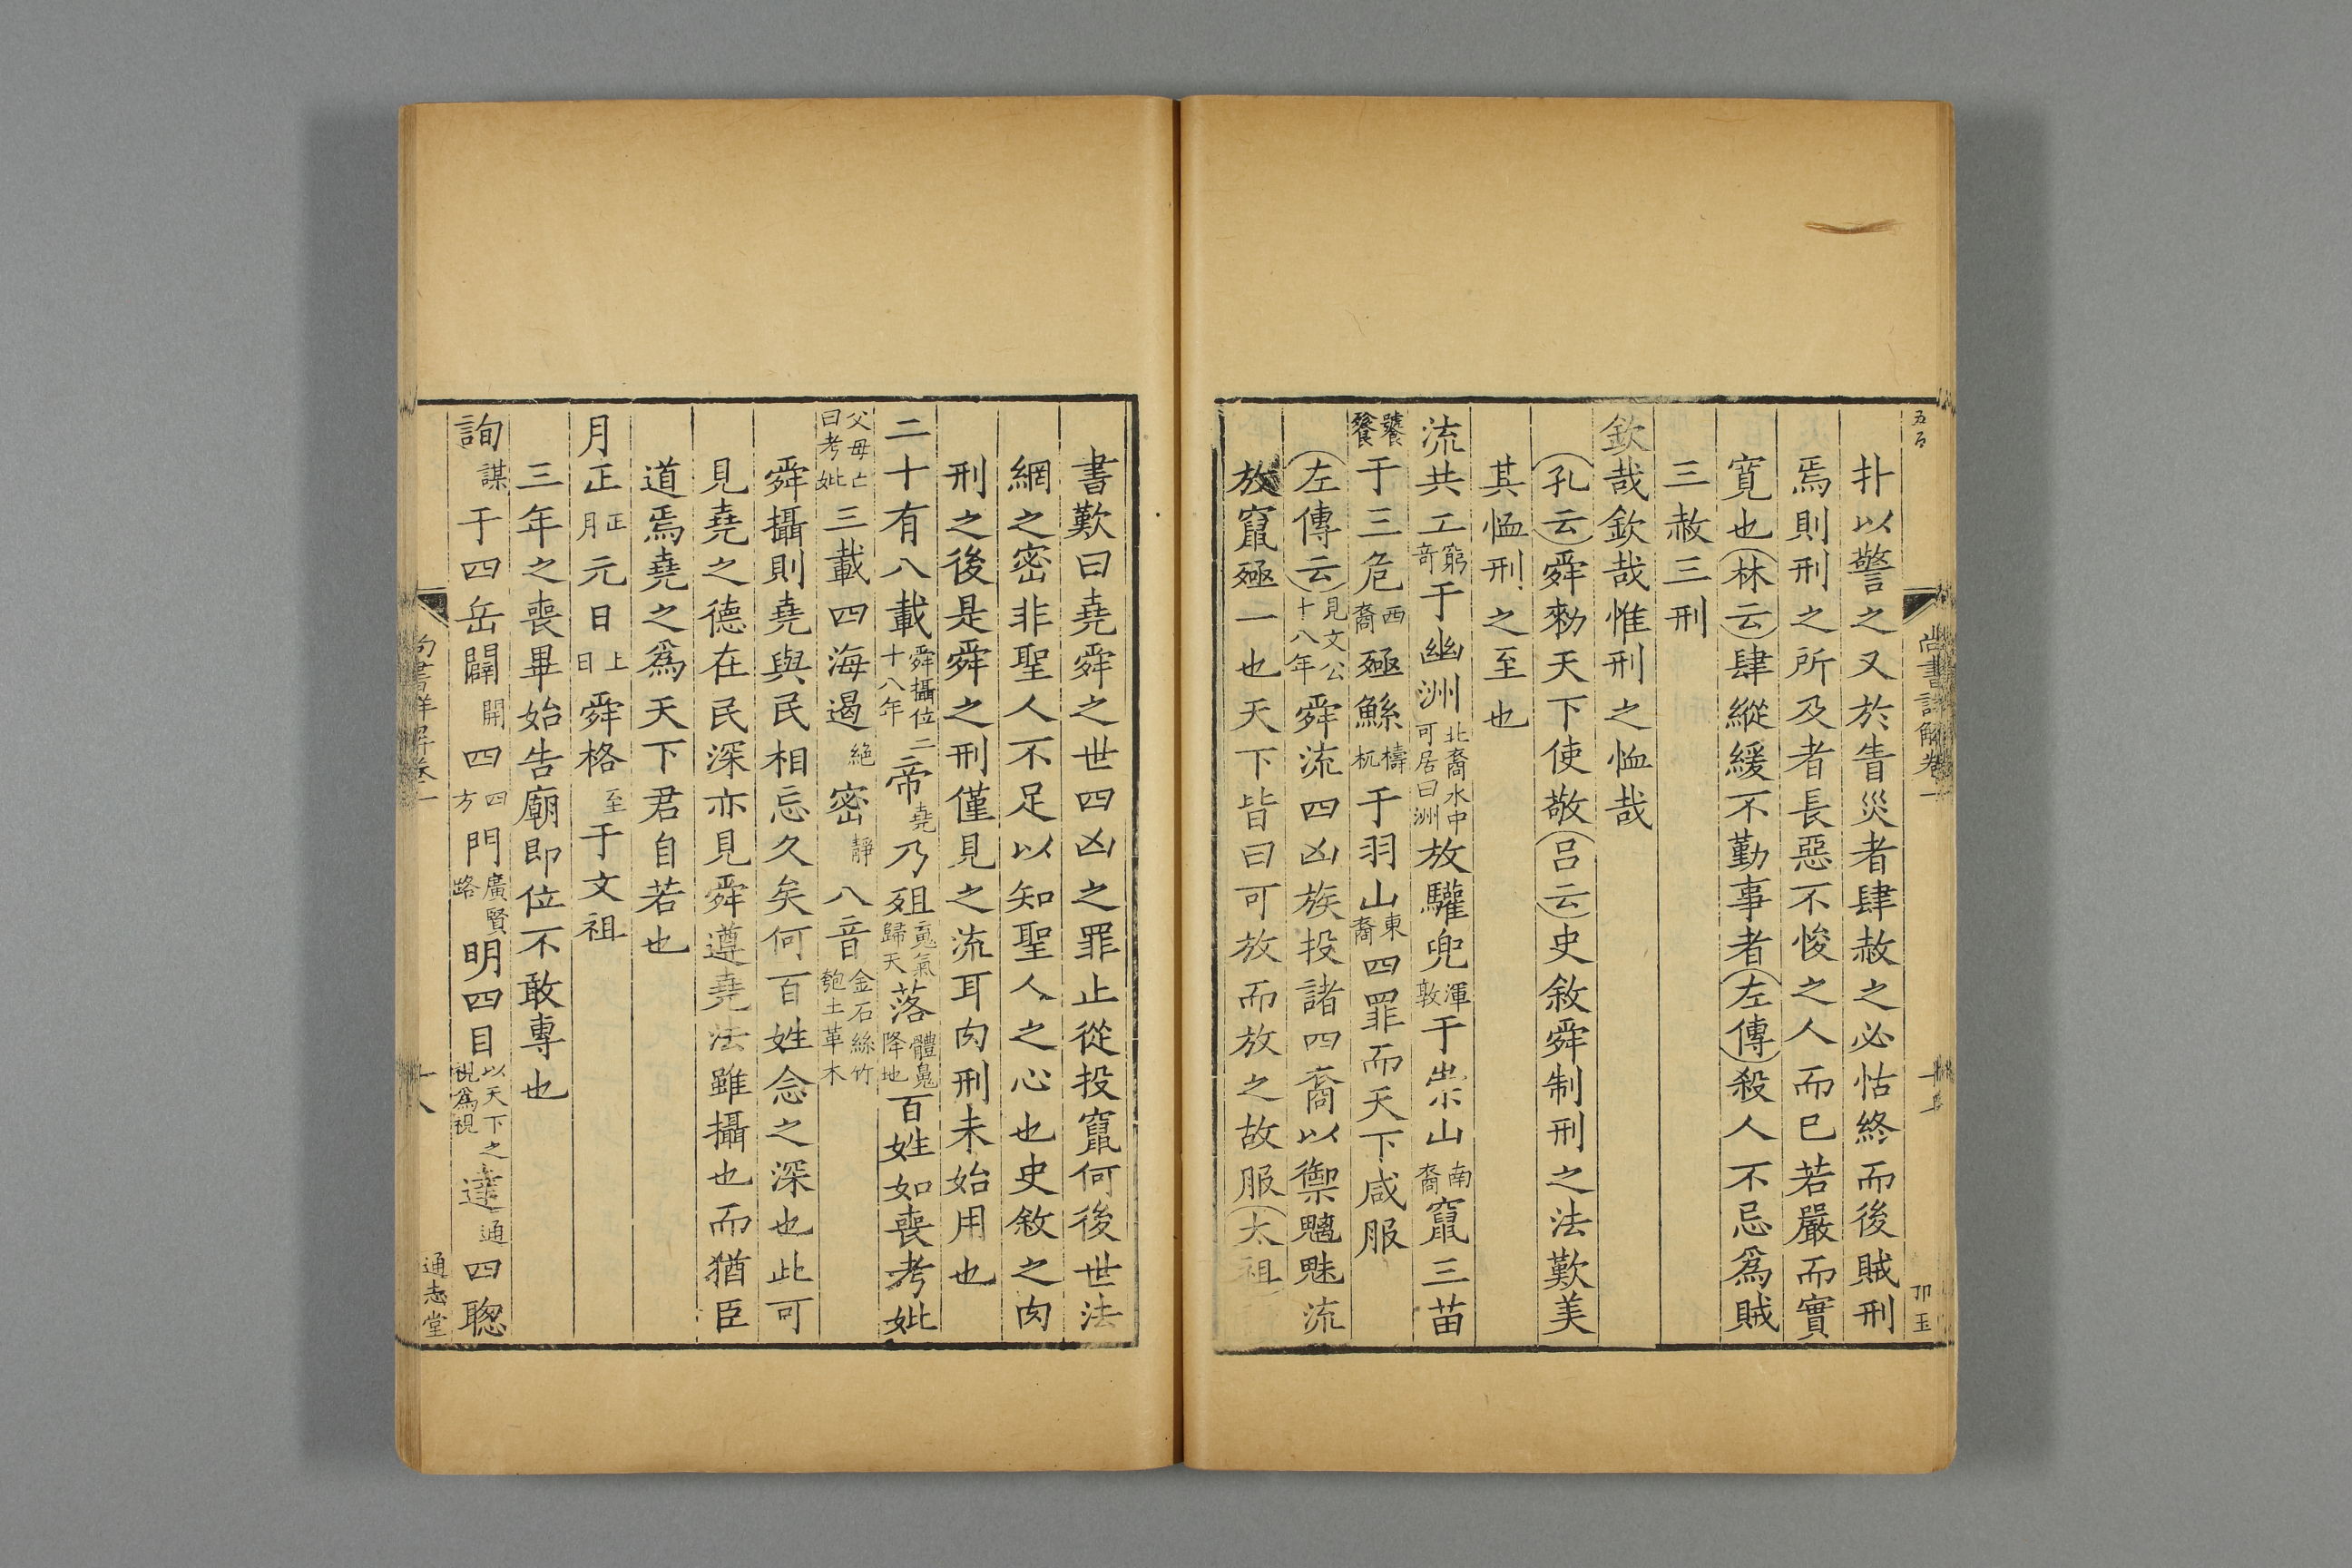 五百
尚書詳解卷一
卭玉
扑以警之又於眚災者肆赦之必怙終而後賊刑
焉則刑之所及者長惡不悛之人而已若嚴而實
寛也林云肆縱緩不勤事者左傳殺人不忌爲賊
三赦三刑
欽哉欽哉惟刑之恤哉
孔云舜勑天下使敬吕云史敘舜制刑之法歎美
其恤刑之至也
流共工窮奇于幽洲北裔水中可居曰洲放驩兜渾敦于崇山南裔竄三苗
饕餮于三危西裔殛鯀檮杌于羽山東裔四罪而天下咸服
左傳云見文公十八年舜流四凶族投諸四裔以禦魑魅流
放竄殛一也天下皆曰可放而放之故服太祖
書歎曰堯舜之世四凶之罪止從投竄何後世法
網之密非聖人不足以知聖人之心也史敘之肉
刑之後是舜之刑僅見之流耳肉刑未始用也
二十有八載舜攝位二十八年帝堯乃殂䰟氣歸天落體鬼降地百姓如喪考妣
父母亡曰考妣三載四海遏絶密靜八音金石絲竹匏土革木
舜攝則堯與民相忘久矣何百姓念之深也此可
見堯之德在民深亦見舜遵堯法雖攝也而猶臣
道焉堯之爲天下君自若也
月正正月元日上日舜格至于文祖
三年之喪畢始告廟即位不敢專也
詢謀于四岳闢開四四方門廣賢路明四目以天下之視爲視達通四聰
尚書詳解卷一
十八
通志堂